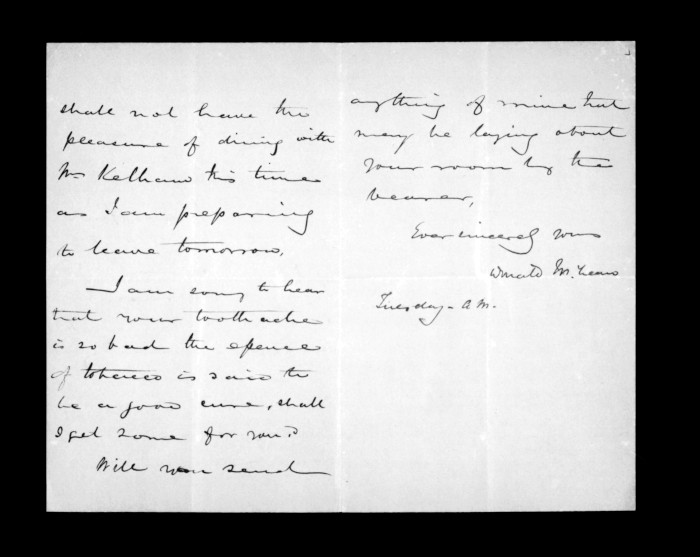 shall not have the
pleasure of dining with
Mr Kelham this time
as I am preparing
to leave tomorrow.
I am sorry to hear
that your toothache
is so bad the
of tobacco is said to
be a good cure, shall
I get some for you?
Will you send
anything of mine that
may be laying about
your room by the
bearer,
Ever sincerely yours
Donald McLean
Tuesday - A M.